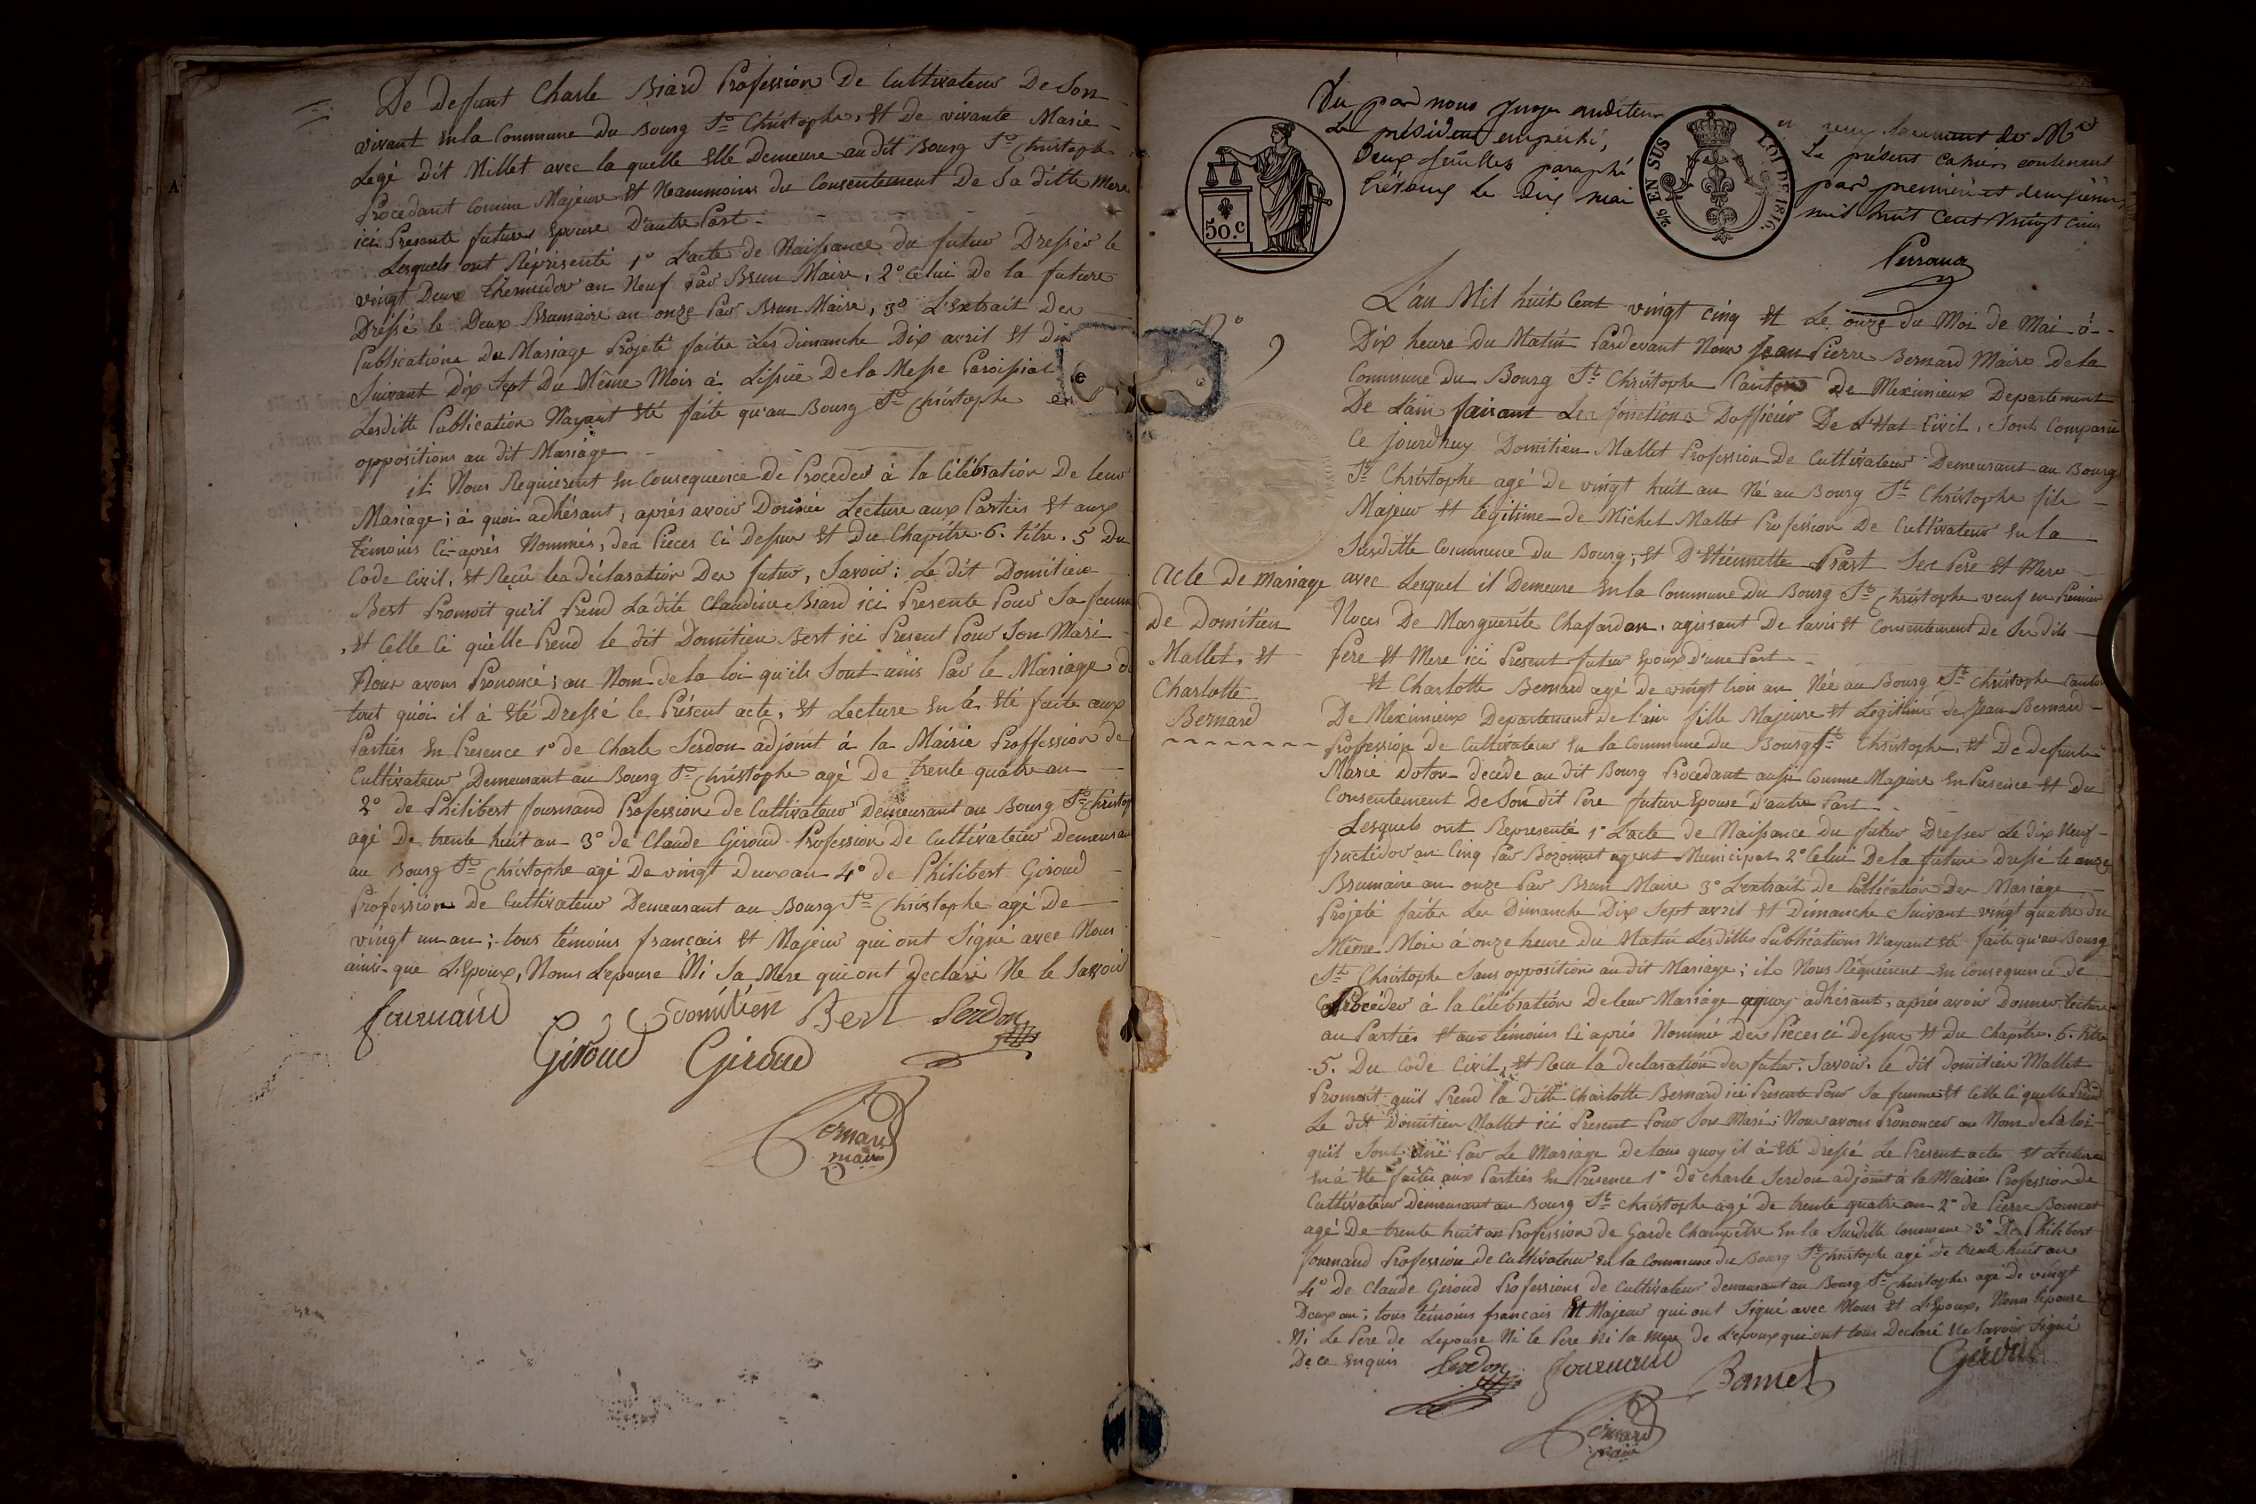 De Defunt Charle Biard Profession De Cultivateur De Son
vivant en la Commune du Bourg St Christophe, Et De vivante Marie
Legé Dit Millet avec la quelle Elle Demeure au dit Bourg St Christophe
Procedant Comme Majeure Et Neanmoins du Consentement De Sa ditte Mere
ici Presente future Epouse D'autre Part.
Lesquels ont Représenté 1° L'acte de Naissance du futur Dressér le
vingt Deux thermidor an Neuf Par Brun Maire, 2° Celui De la future
Dréssé le Deux Brumaire an onze Par Brun Maire, 3° L'Extrait des
Publications Du Mariage Projeté faites Les dimanche Dix avril Et di
Suivant Dix Sept Du Même Mois à L'issuë De la Messe Paroissial
Lesditte Publication N'ayant Eté faite qu'au Bourg St Christophe
oppositions au dit Mariage
ils Nous Requierent En Consequence De Proceder à la Célébration De leur
Mariage ; à quoi adhérant, aprés avoir Donnée Lecture aux Parties Et aux
témoins Ci-aprés Nommés, des Pieces Ci Dessus Et Du Chapitre. 6. titre. 5 Du
Code Civil, Et Reçue les déclaration Des futur, Savoir ; Le dit Domitien
Bert Promoit qu'il Prend La dite Claudine Biard ici Presente Pour Sa femme
, Et Celle Ci quélle Prend le dit Domitien Bert ici Present Pour Son Mari
Nous avons Prononcé ; au Nom de la loi qu'ils Sont unis Par le Mariage d
tout quôi il à Eté Dressé le Présent acte, Et Lecture En à Eté faite aux
Parties En Presence 1° de Charle Serdon adjoint à la Mairie Proffession de
Cultivateur Demeurant au Bourg St Christophe agé De trente quatre an
2° de Philibert fournand Profession de Cultivateur Demeurant au Bourg St Christop
agé De trente huit an 3° de Claude Giroud Profession De Cultivateur Demeuran
au Bourg St Christophe agé De vingt Deux an 4° de Philibert Giroud
Profession de Cultivateur Demeurant au Bourg St Christophe agé De
vingt un an ; tous témoins français Et Majeur qui ont Signé avec Nous
ainsi que L'Epoux, Nonns L'epouse Ni Sa Mere qui ont Declaré Ne le Savoir
fournand Domitien Bert Serdon
Giroud Giroud
Bernard
maire
Vu par nous Juge auditeur
Le président empeché,
Deux feuilles paraphé
Trévoux le Dix mai
Le présent Cahier contenant
par premiere et deuxieme
mil huit Cent Vingt Cinq
Perroud
50.c
2/10 EN SUS LOI DE 1816.
L'an Mil huit Cent vingt cinq Et Le onze du Moi de Mai à
Dix heure Du Matin Pardevant Nous Jean Pierre Bernard Maire De la
Commune Du Bourg St Christophe Canton De Meximieux Departement
De L'ain faisant Les fonctions D'officier De L'Etat Civil, Sont Comparu
Ce jourdhuy Domitien Mallet Profession De Cultivateur Demeurant au Bourg
St Christophe agé De vingt huit an Né au Bourg St Christophe fils
Majeur Et légitime de Michel Mallet Profession De Cultivateur En la
Susditte Commune Du Bourg, Et D'Etiennette Prast Ses Pere Et Mere
avec Lesquel il Demeure En la Commune Du Bourg St Christophe veuf en Premier
Noces De Marguerite Chafardon. agissant De l'avis Et Consentement De Ses dits
Pere Et Mere ici Present futur Epoux D'une Part
Acte De Mariage
De Domitien
Mallet, Et
Charlotte
Bernard
Et Charlotte Bernard agé de vingt trois an Née au Bourg St Christophe Canton
De Meximieux Departement De l'ain fille Majeure Et Legitime de Jean Bernard
Profession De Cultivateur En la Commune Du Bourg St Christophe, Et De defunte
Marie Doton décédé au dit Bourg Procedant aussi Comme Majeure En Presence Et Du
Consentement De Son dit Pere future Epouse D'autre Part
Lesquels ont Representé 1° L'acte De Naissance Du futur Dresser Le dix Neuf
fructidor an Cinq Par Bozonnet agent Municipal 2° Celui De la future Dressé le onze
Brumaire an onze Par Brun Maire 3° L'extrait De Publication Des Mariage
Projeté faites Les Dimanche Dix Sept avril Et Dimanche Suivant vingt quatre du
Même Mois à onze heure Du Matin Lesdittes Publications N'ayant Eté faite qu'au Bourg
St Christophe Sans opposition au dit Mariage ; ils Nous Réquiérent En Consequence de
Procéder à la Célébration De leur Mariage aquoy adhérant, aprés avoir Donner lecture
au Parties Et aux témoins Ci aprés Nommé Des Pieces ci Dessus Et Du Chapitre. 6. titre
5. Du Code Civil, Et Recu la declaration des futur. Savoir. le dit domitien Mallet
Promoit quil Prend la Ditte Charlotte Bernard ici Presente Pour Sa femme Et Celle Ci quelle Prend
Le dit Domitien Mallet ici Present Pour Son Mari ; Nous avons Prononcer au Nom De la loi
quil Sont unie Par Le Mariage De tous quoy il à Eté Dressé Le Present acte Et Lecture
en à Eté faite aux Parties En Presence 1° de Charle Serdon adjoint à la Mairie Profession de
Cultivateur Demeurant au Bourg St Christophe agé De trente quatre an 2° de Pierre Bonnet
agé De trente huit an Profession de Garde Champêtre En la Susditte Commune 3° De Philibert
fournand Profession de Cultivateur En la Commune du Bourg St Christophe agé de trente huit an
4° De Claude Giroud Professions de Cultivateur demeurant au Bourg St Christophe agé De vingt
Deux an ; tous témoins français Et Majeur qui ont Signé avec Nous Et L'Epoux, Nonns L'epouse
Ni Le Pere de Lepouse Ni le Pere Ni la Mere de L'epoux qui ont tous Declaré Ne Savoir Signé
De ce Enquis
Serdon fournand Bonnet Giroud
Bernard
maire